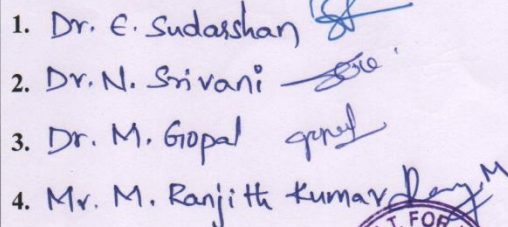 1. Dr. E. Sudarshan
2. Dr. N. Srivani
3. Dr. M. Gopal
4. Mr. M. Ranjith Kumar
T. FOR